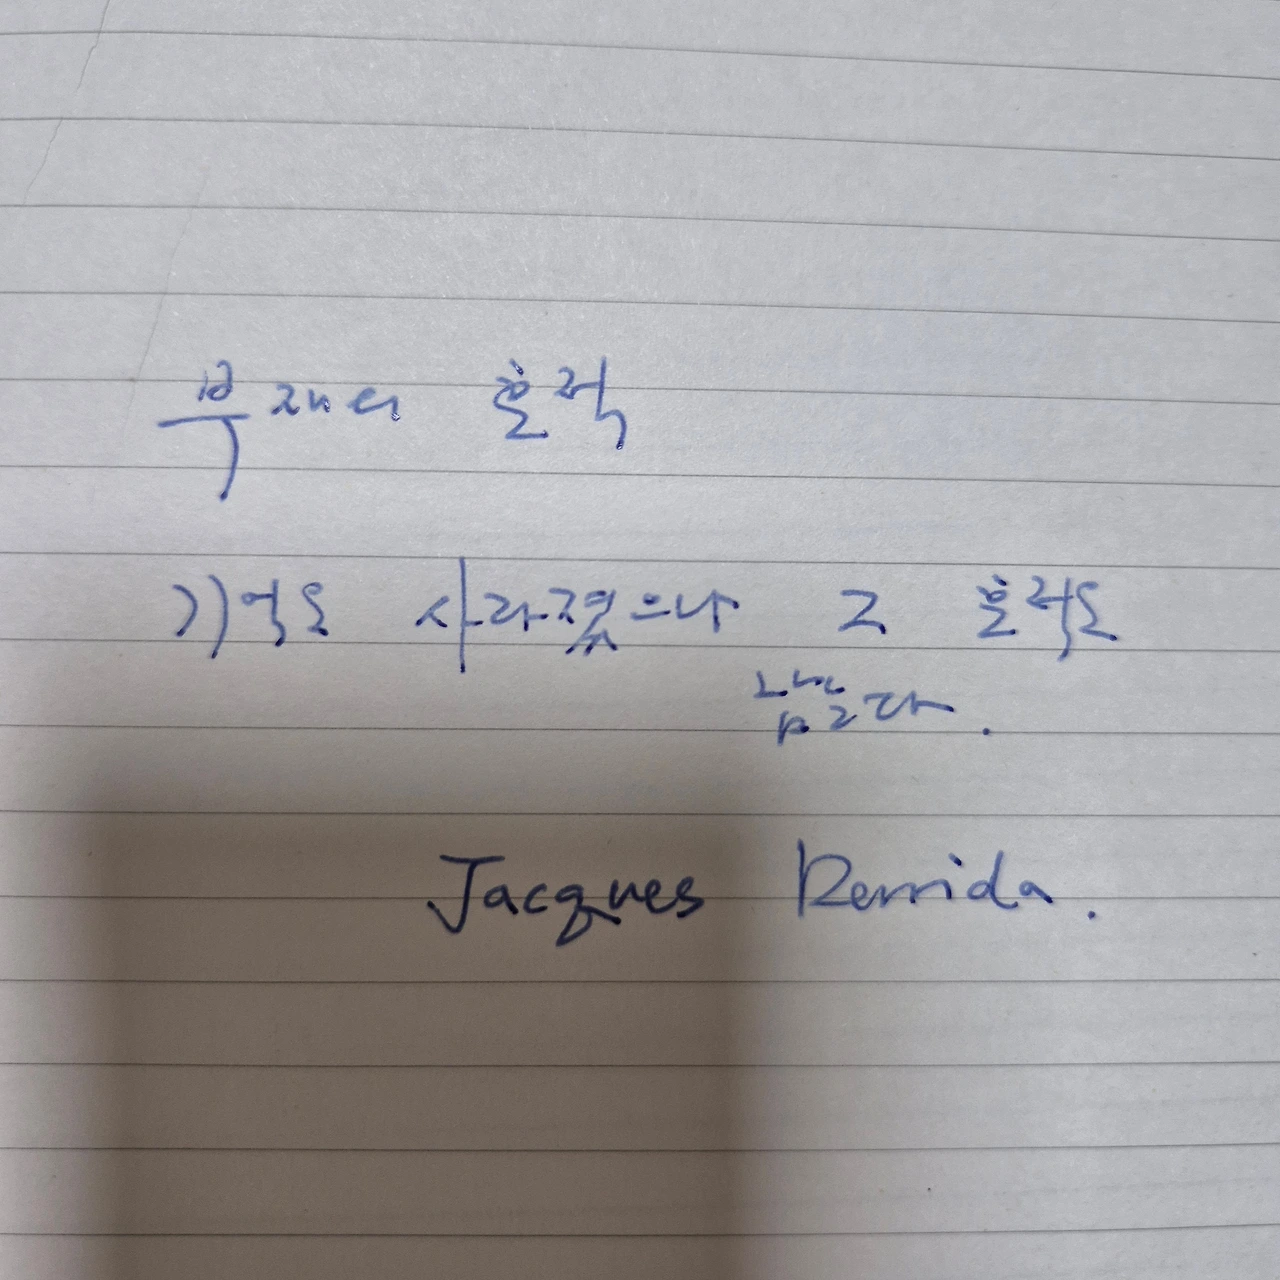 부재의 흔적
기억은 사라졌으나 그 흔적은
남는다.
Jacques Derrida.